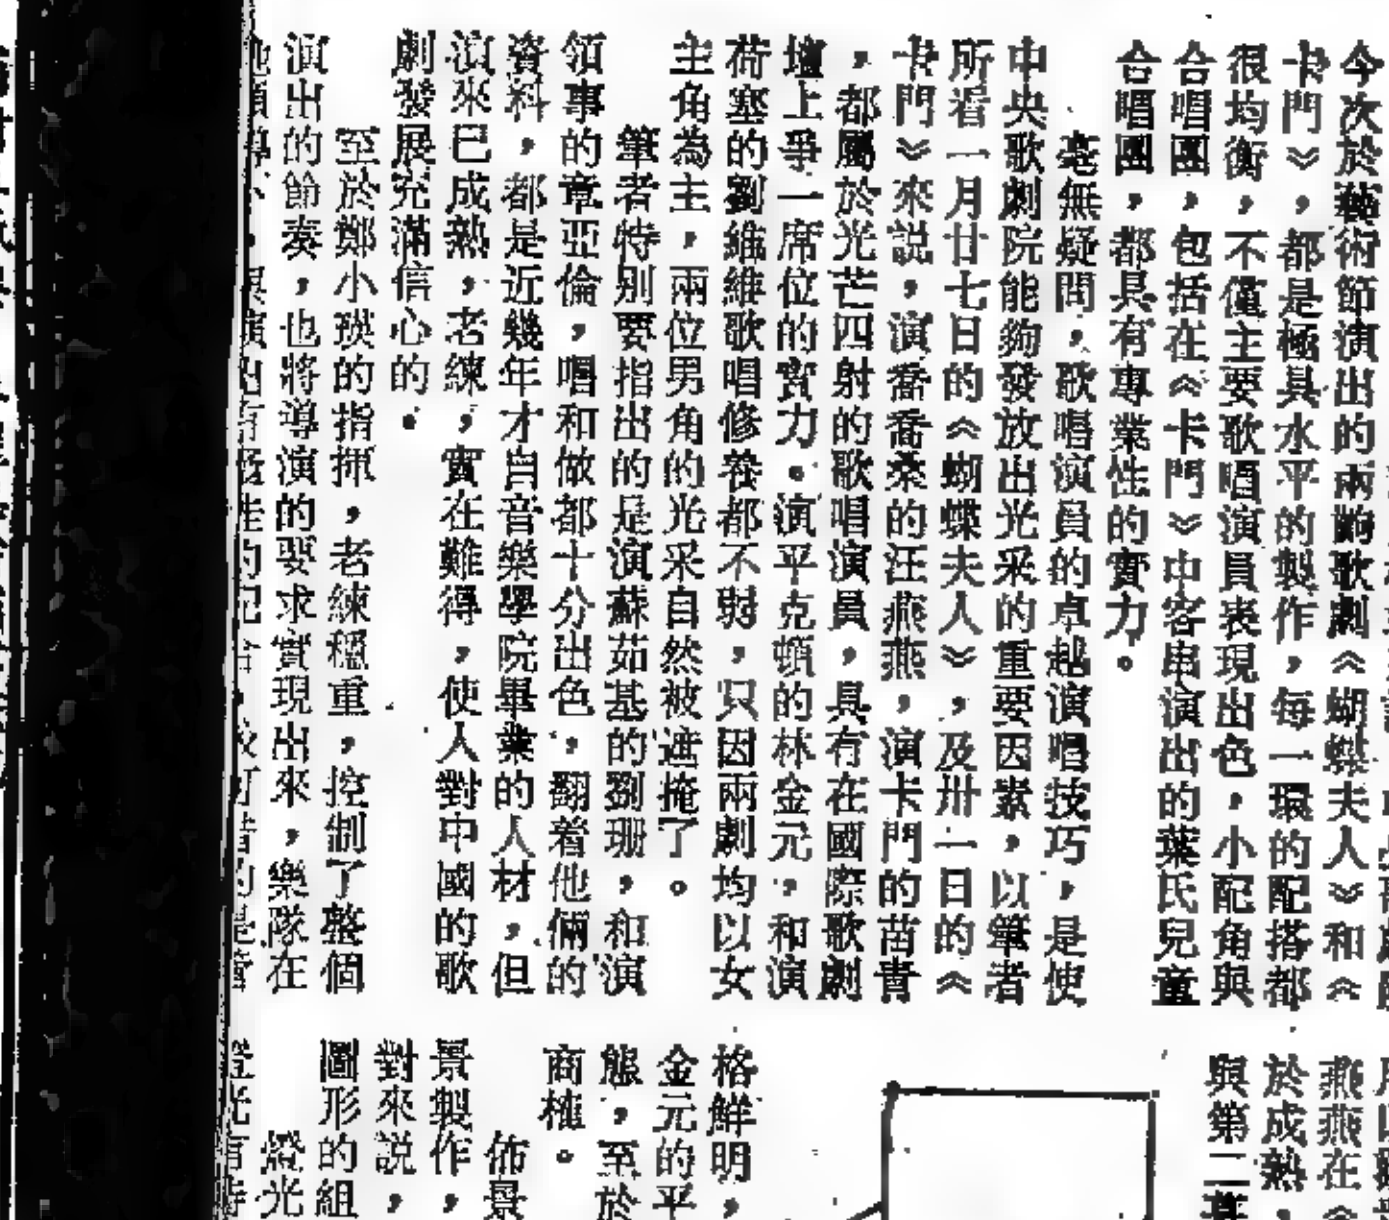 今次於藝術節演出的兩齣歌劇《蝴蝶夫人》和《
卡門》，都是極具水平的製作，每一環的配搭都
很均衡，不僅主要歌唱演員表現出色，小配角與
合唱團，包括在《卡門》中客串演出的葉氏兒童
合唱團，都具有專業性的實力。
毫無疑問，歌唱演員的卓越演唱技巧，是使
中央歌劇院能夠發放出光采的重要因素，以筆者
所看一月廿七日的《蝴蝶夫人》，及卅一日的《
卡門》來説，演喬喬桑的汪燕燕，演卡門的苗青
，都屬於光芒四射的歌唱演員，具有在國際歌劇
壇上爭一席位的實力。演平克頓的林金元，和演
荷塞的劉維維歌唱修養都不弱，只因兩劇均以女
主角為主，兩位男角的光采自然被遮掩了。
筆者特別要指出的是演蘇茹基的劉珊，和演
領事的章亞倫，唱和做都十分出色，翻着他倆的
資料，都是近幾年才自音樂學院畢業的人材，但
演來已成熟，老練，實在難得，使人對中國的歌
劇發展充滿信心的。
至於鄭小瑛的指揮，老練穩重，控制了整個
演出的節奏，也將導演的要求實現出來，樂隊在
與第二幕
於成熟，
燕燕在《
格鮮明，
金元的平
態，至於
商榷。
佈景
景製作，
對來説，
圖形的組
燈光